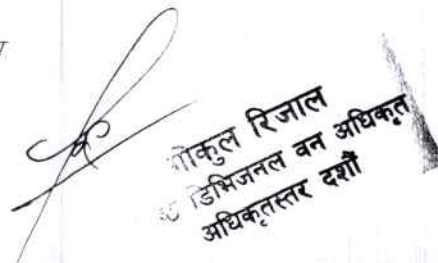 गोकुल रिजाल
डिभिजनल वन अधिकृत
अधिकृतस्तर दशौं